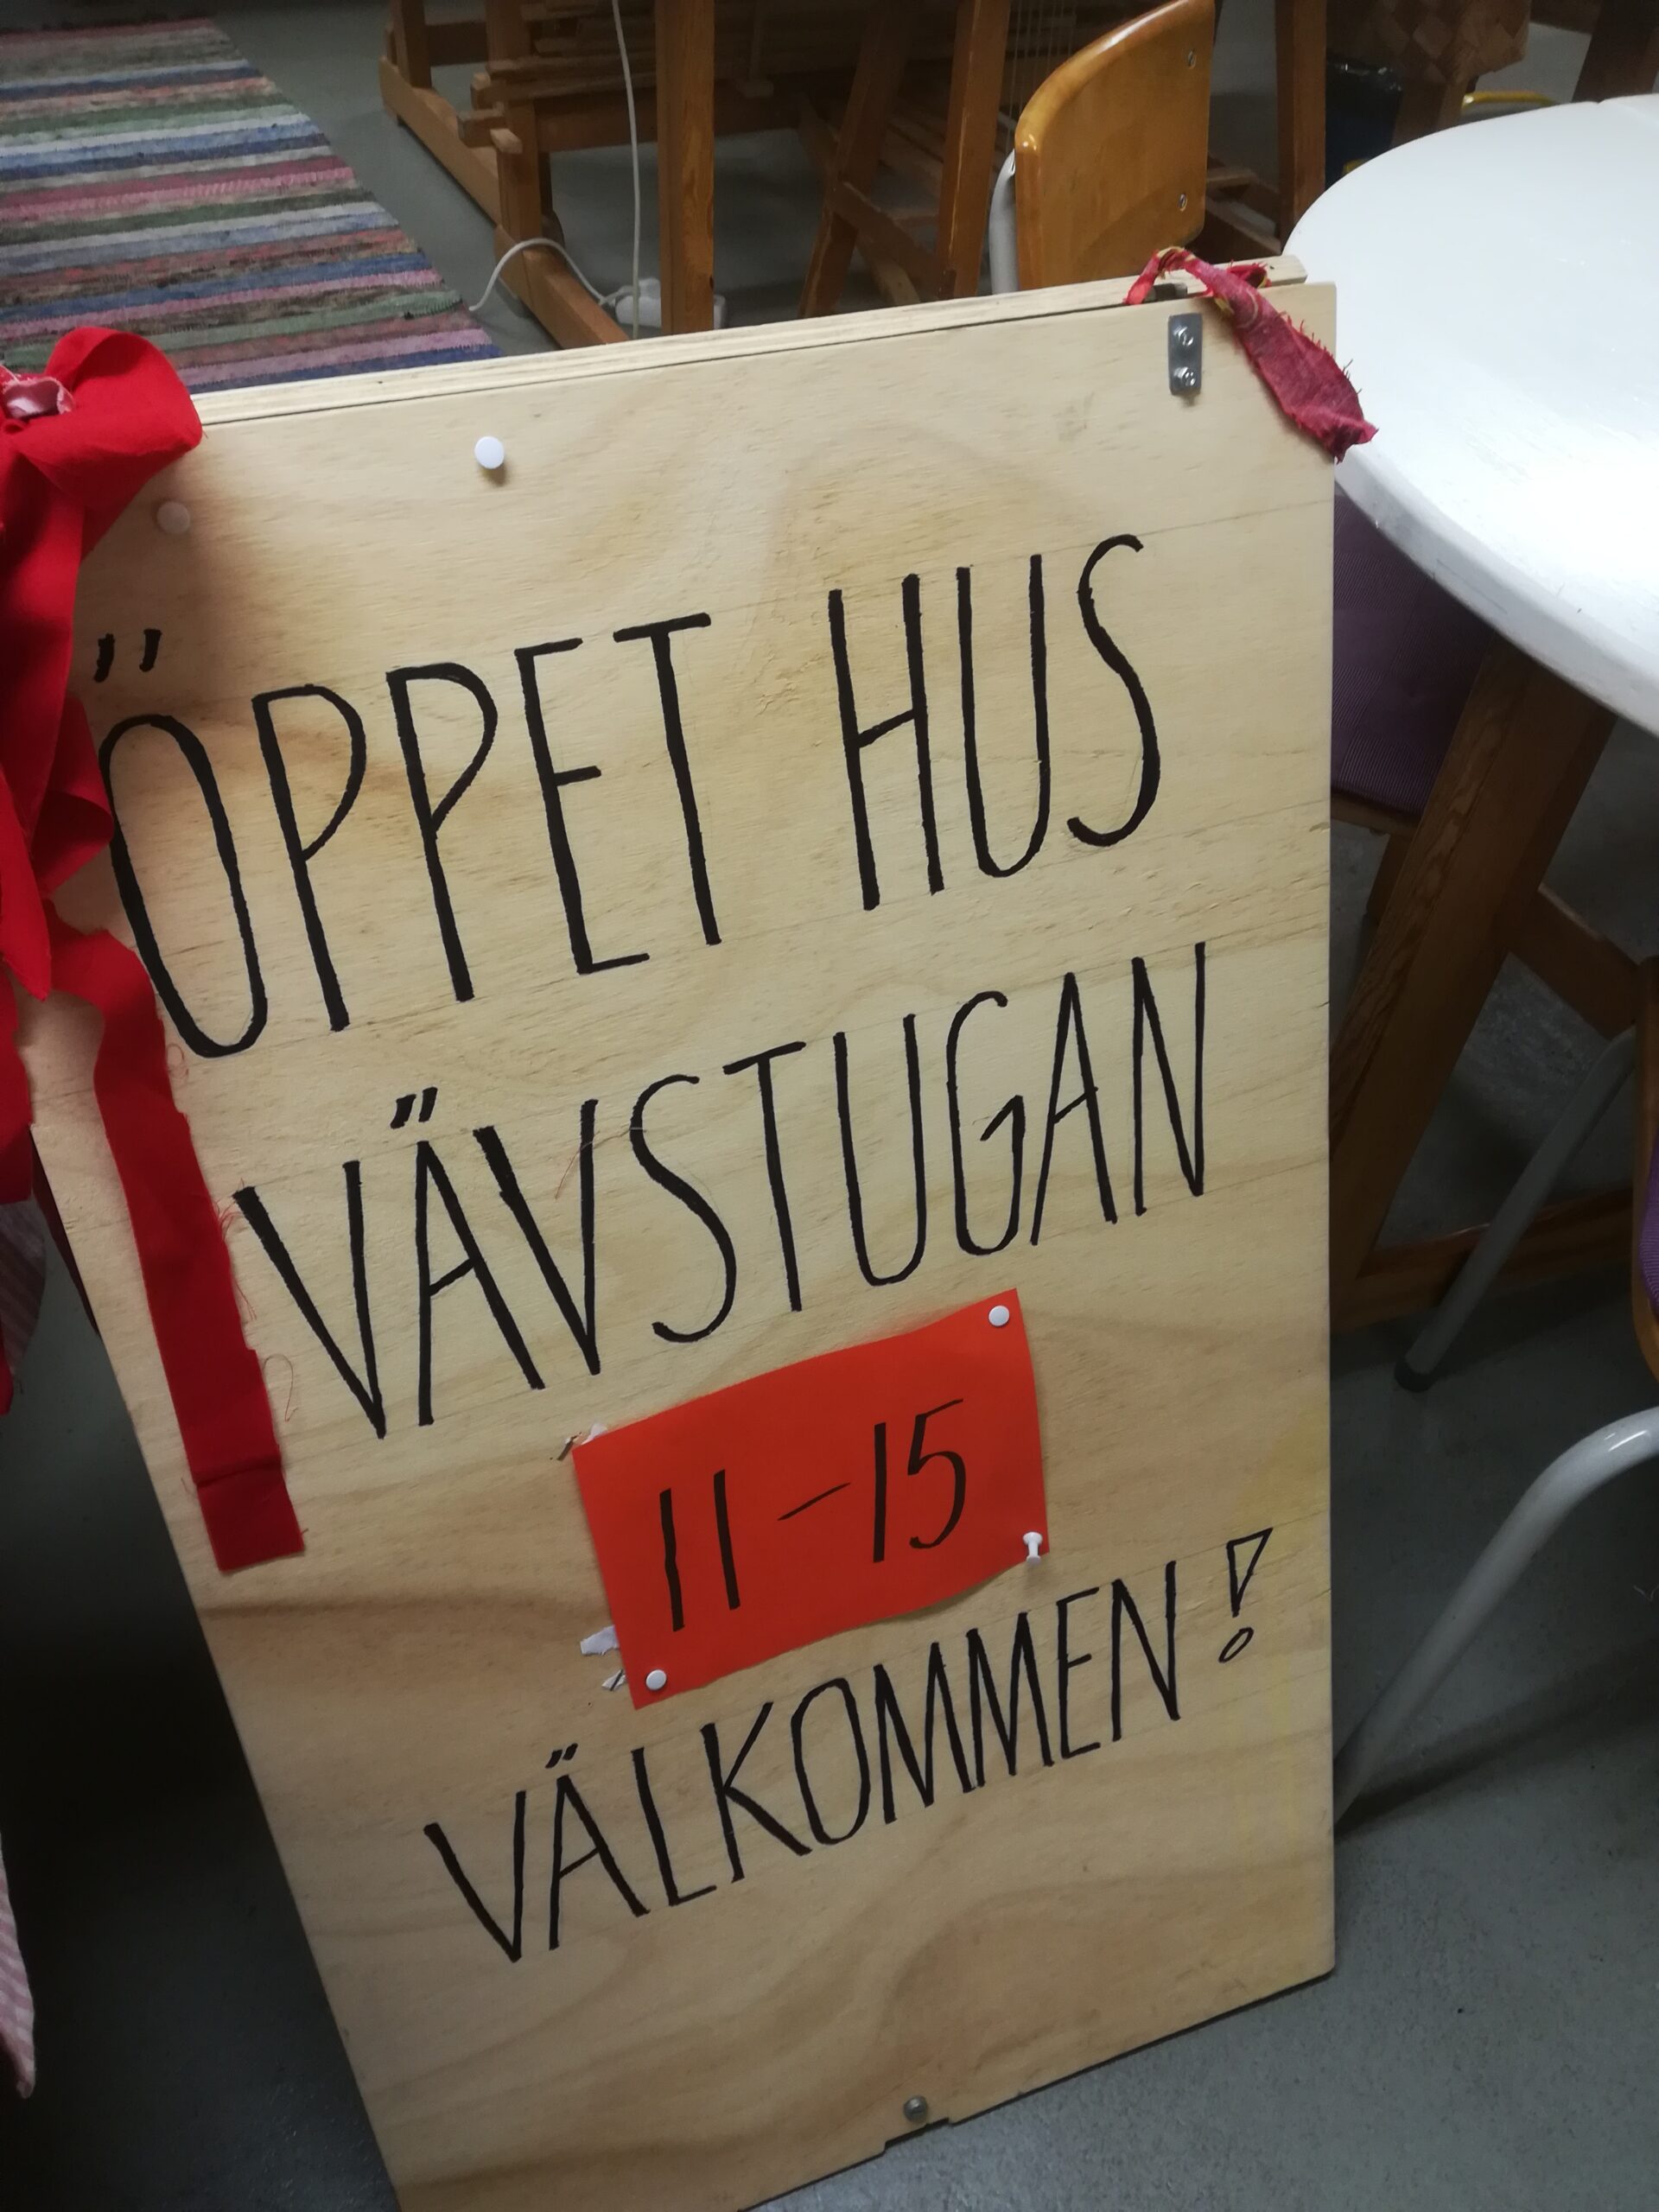 ÖPPET HUS
VÄVSTUGAN
11-15
VÄLKOMMEN!